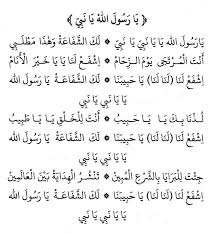 ﴿ يَا رَسُولَ اللهِ يَا نَبِيْ ﴾
يَارَسُولَ اللهِ يَا يَا نَبِيْ يَا نَبِيْ * لَكَ الشَّفَاعَةْ وَهٰذَا مَطْلَبِيْ
أَنْتَ الْمُرْتَجَى يَوْمَ الزِّحَامْ * اِشْفَعْ لَنَا يَا يَا خَيْرَ الْأَنَامْ
اِشْفَعْ لَنَا (لَنَا لَنَا) يَا حَبِيبَنَا * لَكَ الشَّفَاعَةْ يَا رَسُولَ اللهِ
يَا يَا نَبِيْ يَا نَبِيْ
لُذْنَا بِكَ يَا يَا حَبِيبْ * أَنْتَ لِلْخَلْقِ يَا يَا طَبِيبْ
اِشْفَعْ لَنَا (لَنَا لَنَا) يَا حَبِيبَنَا * لَكَ الشَّفَاعَةْ يَا رَسُولَ اللهِ
يَا يَا نَبِيْ يَا نَبِيْ
جِئْتَ لِلْبَرَايَا بِالشَّرْعِ الْمُبِينْ * تَنْشُرُ الْهِدَايَةْ بَيْنَ الْعَالَمِينْ
اِشْفَعْ لَنَا (لَنَا لَنَا) يَا حَبِيبَنَا * لَكَ الشَّفَاعَةْ يَا رَسُولَ اللهِ
يَا يَا نَبِيْ يَا نَبِيْ